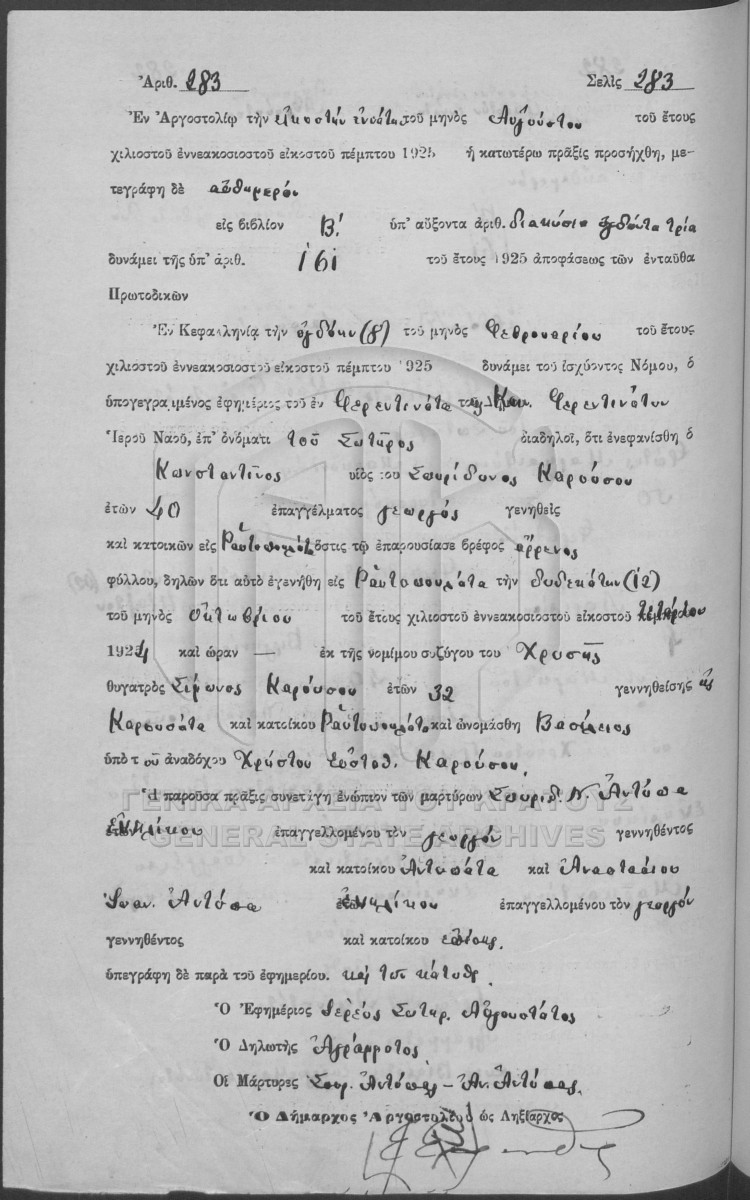 Ἀριθ. 283 Σελὶς 283
Ἐν Ἀργοστολίῳ τὴν εἰκοστὴν ἐνάτην τοῦ μηνὸς Αὐγούστου τοῦ ἔτους
χιλιοστοῦ ἐννεακοσιοστοῦ εἰκοστοῦ πέμπτου 1925 ἡ κατωτέρω πρᾶξις προσήχθη, με-
τεγράφη δὲ αὐθημερόν
εἰς βιβλίον Β! ὑπ' αὔξοντα ἀριθ. διακόσια ὀγδόντα τρία
δυνάμει τῆς ὑπ' ἀριθ. 161 τοῦ ἔτους 1925 ἀποφάσεως τῶν ἐνταῦθα
Πρωτοδικῶν
Ἐν Κεφαλληνίᾳ τὴν ὀγδόην (8) τοῦ μηνὸς Φεβρουαρίου τοῦ ἔτους
χιλιοστοῦ ἐννεακοσιοστοῦ εἰκοστοῦ πέμπτου 1925 δυνάμει τοῦ ἰσχύοντος Νόμου, ὁ
ὑπογεγραμμένος ἐφημέριος τοῦ ἐν Φερεντινάτα τοῦ Κοιν. Φερεντινάτων
Ἱεροῦ Ναοῦ, ἐπ' ὀνόματι τοῦ Σωτῆρος διαδηλοῖ, ὅτι ἐνεφανίσθη ὁ
Κωνσταντῖνος υἱὸς του Σπυρίδωνος Καρούσου
ἐτῶν 40 ἐπαγγέλματος γεωργός γενηθεὶς
καὶ κατοικῶν εἰς Ραυτοπουλάτα ὅστις τῷ ἐπαρουσίασε βρέφος ἄρρενος
φύλλου, δηλῶν ὅτι αὐτὸ ἐγενήθη εἰς Ραυτοπουλάτα τὴν δωδεκάτην (12)
τοῦ μηνὸς Ὀκτωβρίου τοῦ ἔτους χιλιοστοῦ ἐννεακοσιοστοῦ εἰκοστοῦ τετάρτου
1924 καὶ ὥραν — ἐκ τῆς νομίμου συζύγου του Χρυσῆς
θυγατρὸς Σίμωνος Καρούσου ἐτῶν 32 γεννηθείσης εἰς
Καρουσάτα καὶ κατοίκου Ραυτοπουλάτα καὶ ὠνομάσθη Βασίλειος
ὑπὸ τοῦ ἀναδόχου Χρήστου Εὐσταθ. Καρούσου
Ἡ παροῦσα πρᾶξις συνετάγη ἐνώπιον τῶν μαρτύρων Σπυριδ. Ν. Ἀντύπα
ἐνηλίκου ἐπαγγελλομένου τὸν γεωργόν γεννηθέντος
καὶ κατοίκου Ἀντυπάτα καὶ Ἀναστασίου
Ἰωαν. Ἀντύπα ἐνηλίκου ἐπαγγελλομένου τὸν γεωργόν
γεννηθέντος καὶ κατοίκου ἐπίσης,
ὑπεγράφη δὲ παρὰ τοῦ ἐφημερίου. καὶ
Ὁ Ἐφημέριος Ἱερεὺς Σωτηρ. Αὐγουστάτος
Ὁ Δηλωτὴς Ἀγράμματος
Οἱ Μάρτυρες Σπυρ. Ἀντύπας – Ἀν. Ἀντύπας,
Ὁ Δήμαρχος Ἀργοστολίου ὡς Ληξίαρχος
ΓΕΝΙΚΑ ΑΡΧΕΙΑ ΤΟΥ ΚΡΑΤΟΥΣ
GENERAL STATE ARCHIVES